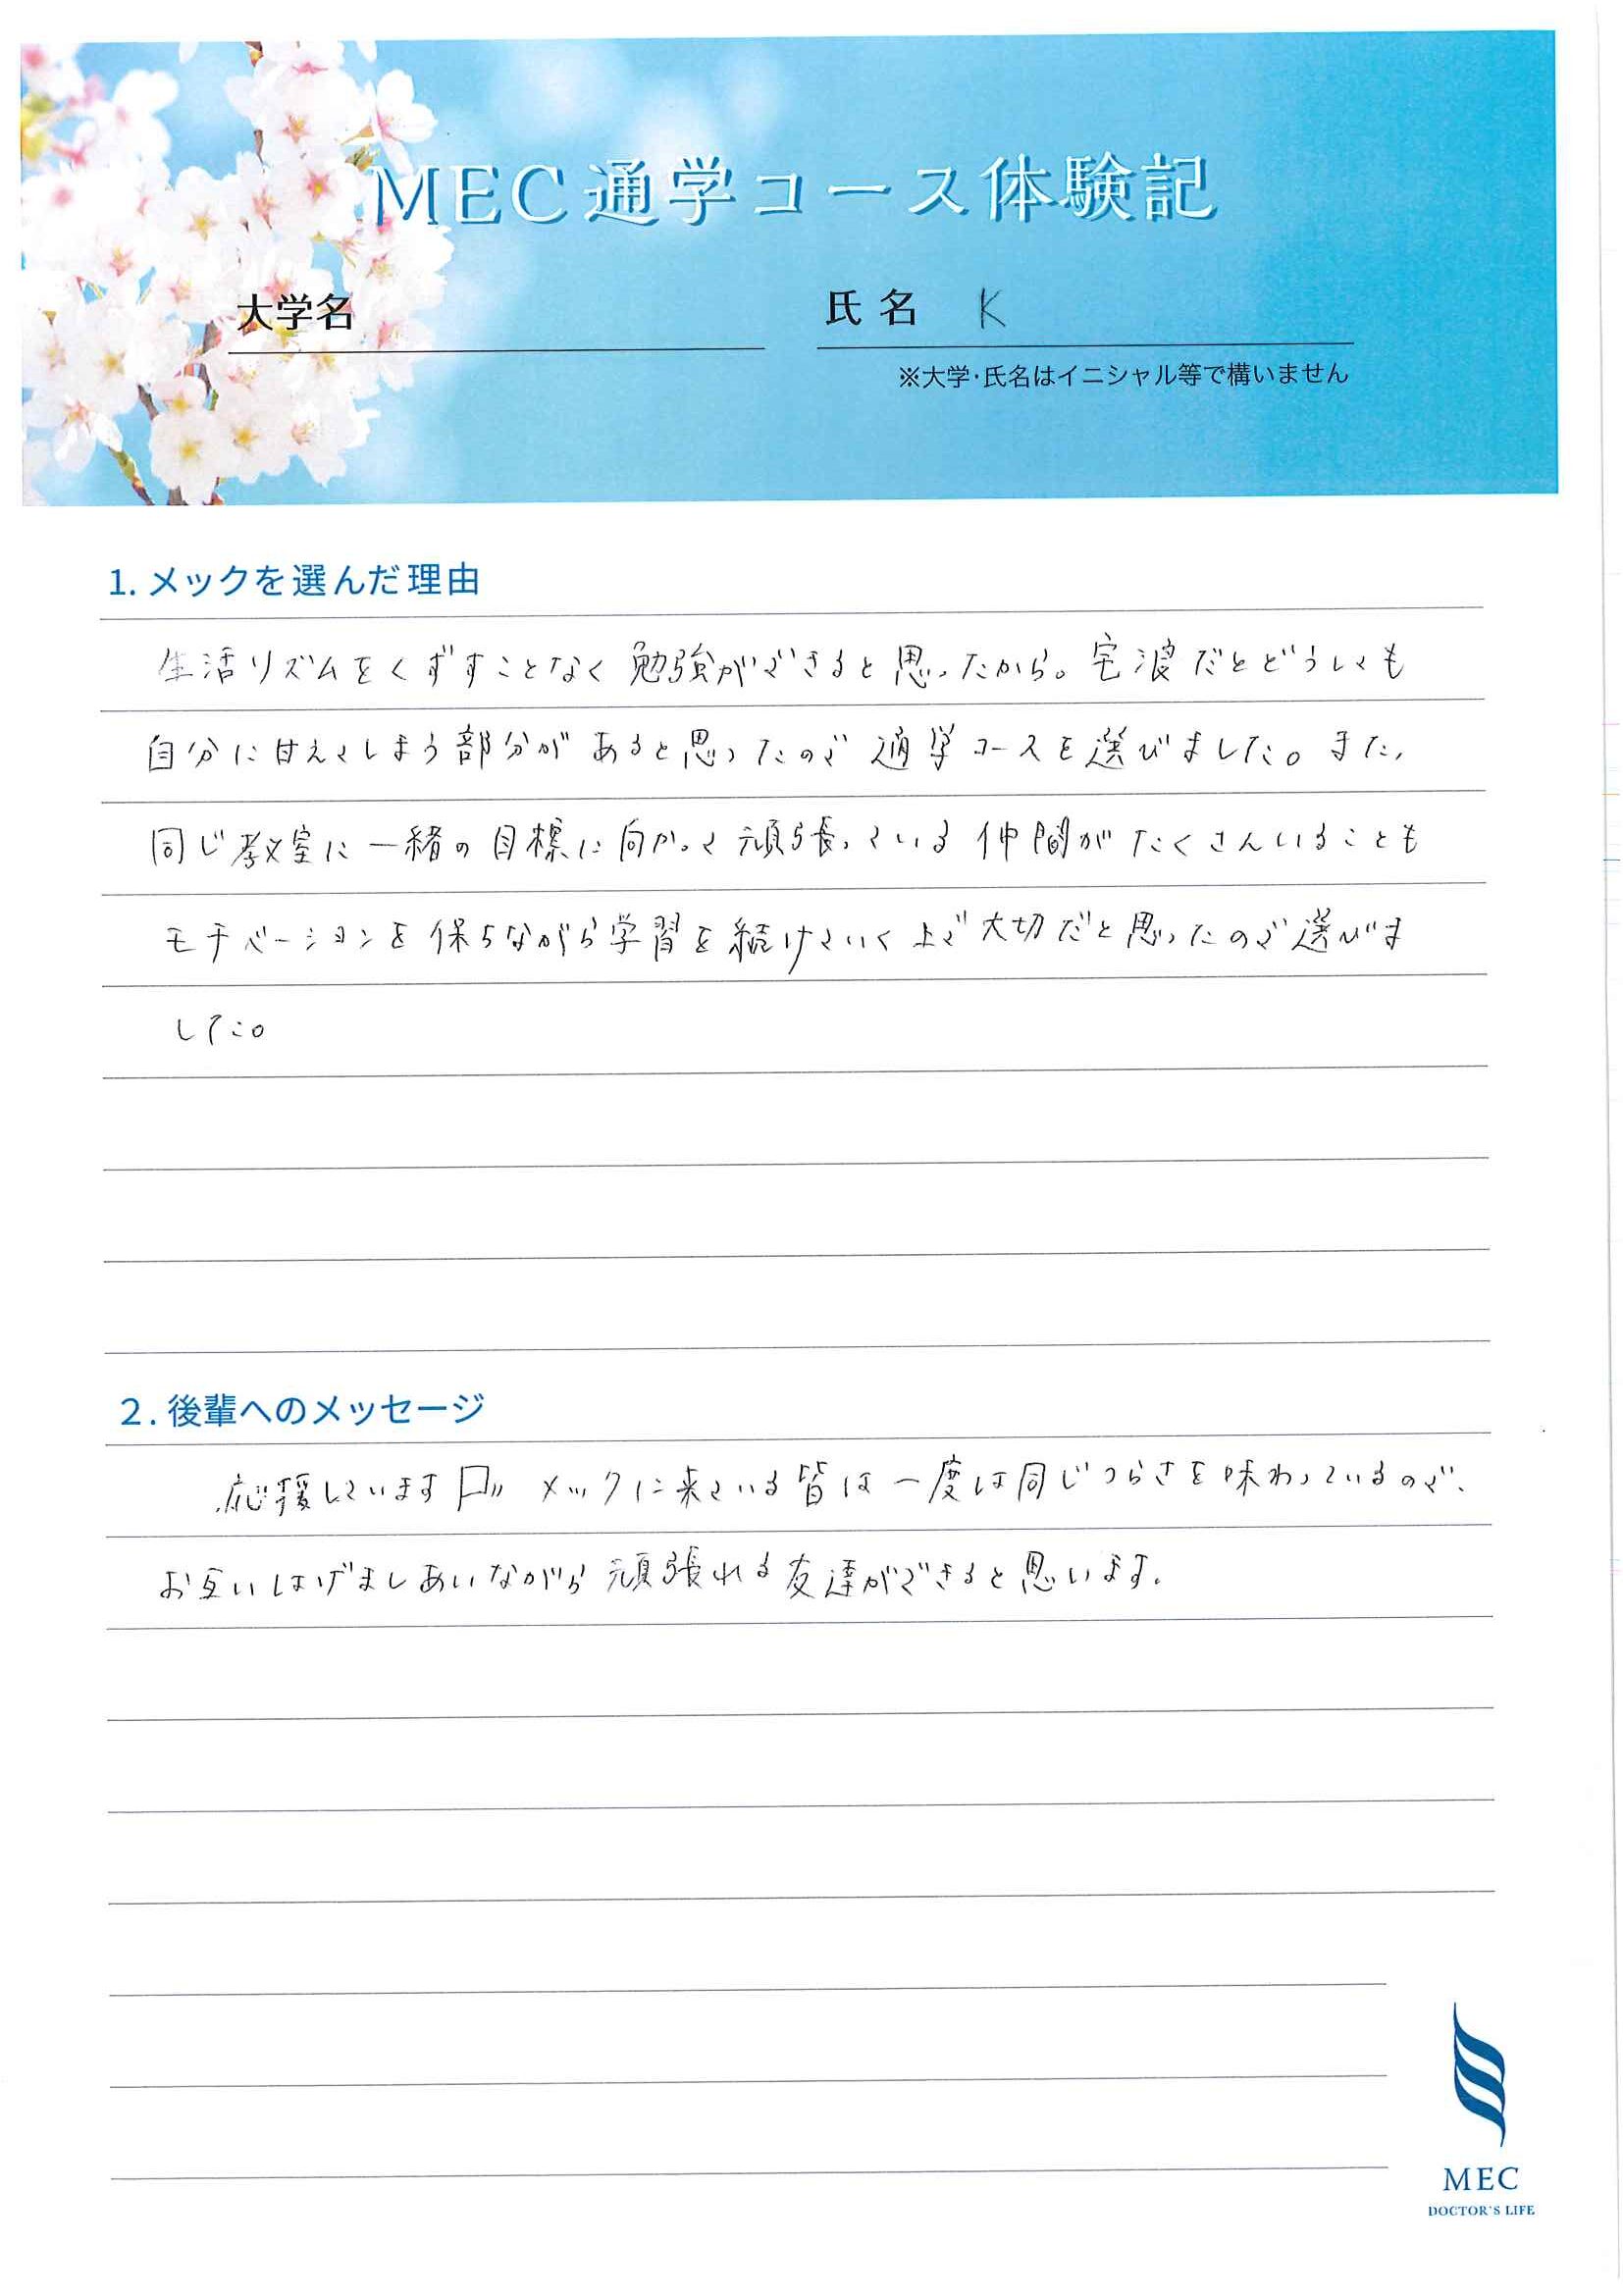 MEC通学コース体験記
大学名
氏名 K
※大学・氏名はイニシャル等で構いません
1. メックを選んだ理由
生活リズムをくずすことなく勉強ができると思ったから。宅浪だとどうしても
自分に甘えてしまう部分があると思ったので通学コースを選びました。また、
同じ教室に一緒の目標に向かって頑張っている仲間がたくさんいることも
モチベーションを保ちながら学習を続けていく上で大切だと思ったので選びま
した。
2. 後輩へのメッセージ
応援しています メックに来ている皆は一度は同じつらさを味わっているので、
お互いはげましあいながら頑張れる友達ができると思います。
MEC
DOCTOR'S LIFE